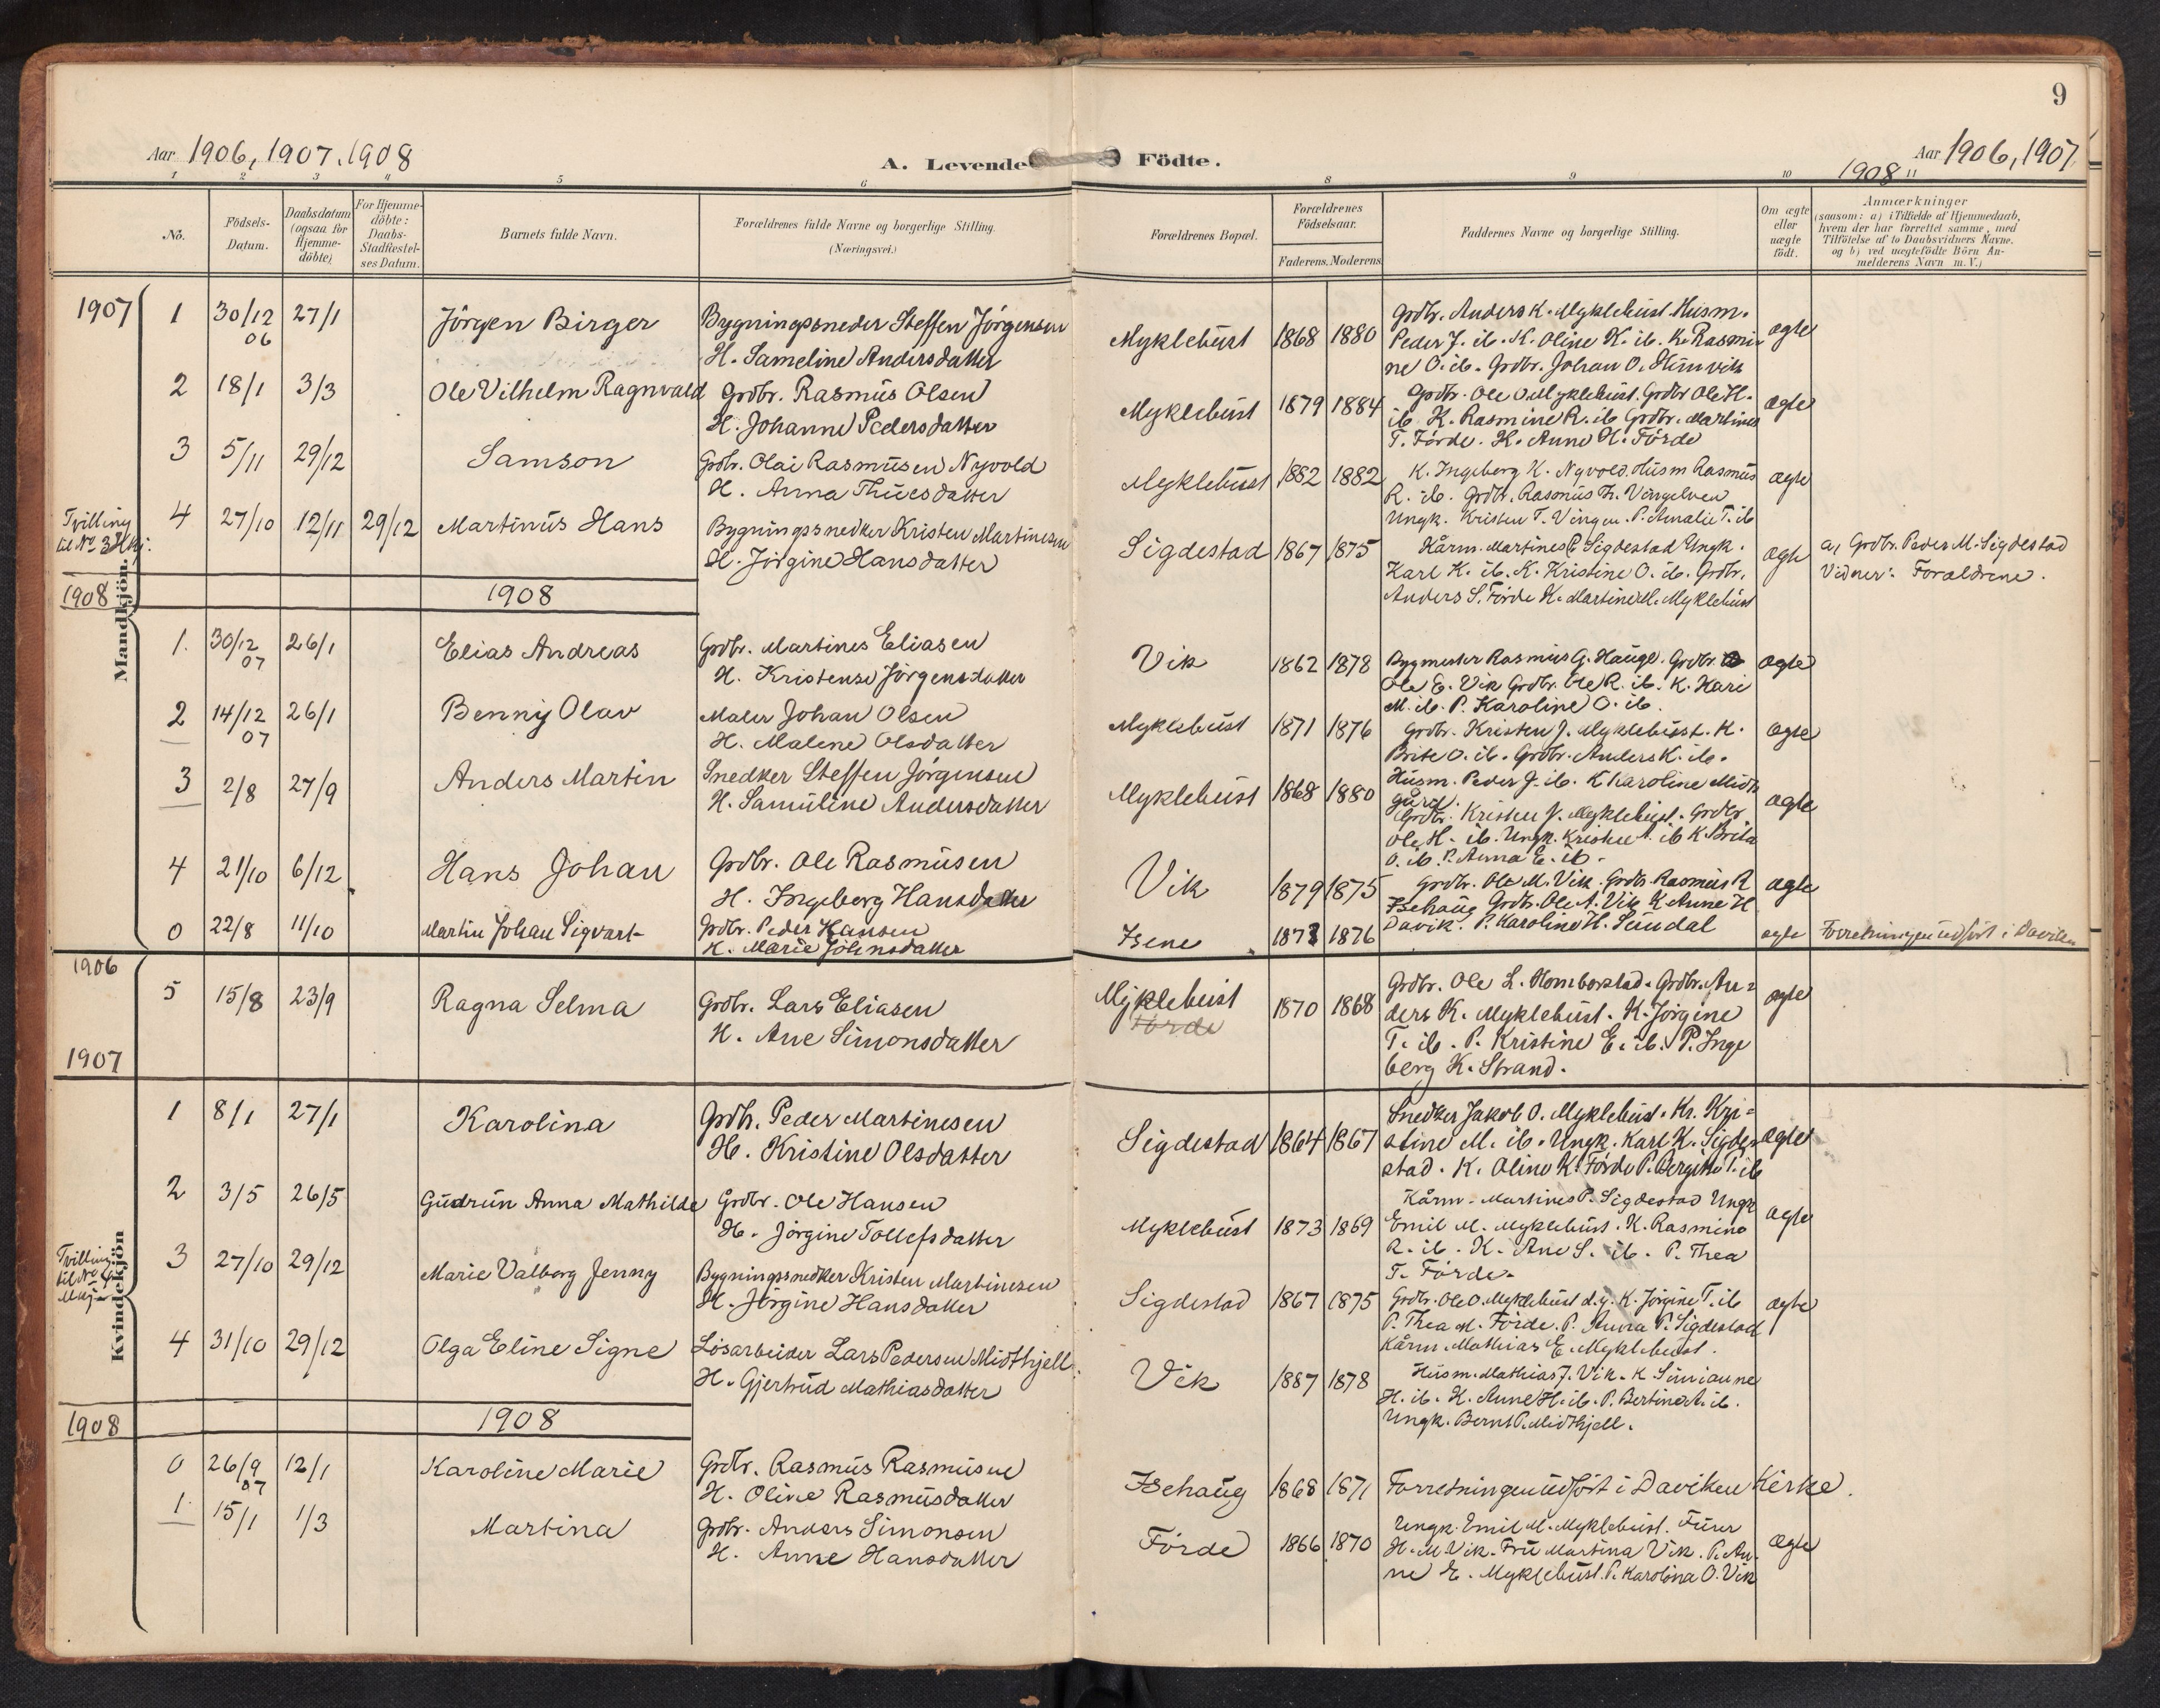 9
Aar 1906, 1907, 1908
A. Levende Födte.
Aar 1906, 1907
1908
1 2 3 4 5 6 8 9 10 11
No.
Födsels-
Datum.
Daabsdatum
(ogsaa for
Hjemme-
döbte)
For Hjemme-
döbte:
Daabs-
Stadfæstel-
ses Datum.
Barnets fulde Navn.
Forældrenes fulde Navne og borgerlige Stilling.
(Næringsvei.)
Forældrenes Bopæl.
Forældrenes
Födselsaar.
Faderens. Moderens.
Faddernes Navne og borgerlige Stilling.
Om ægte
eller
uægte
födt.
Anmærkninger
(saasom: a) i Tilfælde af Hjemmedaab,
hvem der har forrettet samme, med
Tilföielse af to Daabsvidners Navne,
og b) ved uægtefödte Börn An-
melderens Navn m. V.)
Mandkjön.
1907
1 30/12 06 27/1 Jörgen Birger
Bygningssneder Steffen Jörgensen
H. Sameline Andersdatter
Myklebust 1868 1880
Grdbr. Anders K. Myklebust. Husm.
Peder J. ib. K. Oline K. ib. K. Rasmi
ne O. ib. Grdbr. Johan O. Humvik
ægte
2 18/1 3/3 Ole Vilhelm Ragnvald
Grdbr. Rasmus Olsen
H. Johanne Pedersdatter
Myklebust 1879 1884
Grdbr. Ole O. Myklebust. Grdbr Ole H.
ib. K. Rasmine R. ib Grdbr. Martines
T. Förde. K. Anne H. Förde
ægte
3 5/11 29/12 Samson
Grdbr. Olai Rasmusen Nyvold
H. Anna Thuesdatter
Myklebust 1882 1882
K. Ingeberg K. Nyvold. Husm Rasmus
R. ib. Grdbr. Rasmus Th. Vingelven
Ungk. Kristen T. Vingen. P. Amalie T. ib
ægte
Tvilling
til No 3 Kkj.
4 27/10 12/11 29/12 Martinus Hans
Bygningssnedker Kristen Martinesen
H. Jörgine Hansdatter
Sigdestad 1867 1875
Kårm. Martines P. Sigdestad Ungk.
Karl K. ib. K. Kristine O. ib. Grdbr.
Anders S. Förde K. Martine M. Myklebust
ægte
a, Grdbr. Peder M. Sigdestad
Vidner: Forældrene.
1908
1908
1. 30/12 07 26/1 Elias Andreas
Grdbr. Martines Eliasen
H. Kristense Jörgensdatter
Vik 1862 1878
Bygmester Rasmus G. Hauge. Grdbr.
Ole E. Vik Grdbr. Ole R. ib. K. Kari
M. ib. P. Karoline O. ib.
ægte
2 14/12 07 26/1 Benny Olav
Maler Johan Olsen
H. Malene Olsdatter
Myklebust 1871 1876
Grdbr. Kristen J. Myklebust. K.
Brite O. ib. Grdbr. Anders K. ib.
Husm. Peder J. ib. K Karoline Midt
gård.
ægte
3 2/8 27/9 Anders Martin
Snedker Steffen Jörgensen
H. Samuline Andersdatter
Myklebust 1868 1880
Grdbr. Kristen J. Myklebust. Grdbr.
Ole H. ib. Ungk. Kristen A. ib K Brita
O. ib. P. Anna E. ib.
ægte
4 21/10 6/12 Hans Johan
Grdbr. Ole Rasmusen
H. Ingeberg Hansdatter
Vik 1879 1875
Grdbr. Ole M. Vik. Grdbr. Rasmus R
Isehaug Grdbr. Ole A. Vik K Anne H
Davik. P. Karoline H. Sundal
ægte
0 22/8 11/10 Martin Johan Sigvart
Grdbr. Peder Hansen
H. Marie Johnsdatter
Isene 1873 1876
ægte
Forretningen udfört i Daviken
Kvindekjön
1906
5 15/8 23/9 Ragna Selma
Grdbr. Lars Eliasen
H. Ane Simonsdatter
Myklebust
Förde
1870 1868
Grdbr. Ole L. Homborstad. Grdbr. An=
ders K. Myklebust. K. Jörgine
T. ib. P. Kristine E. ib. P. Inge
berg K. Strand.
ægte
1907
1 8/1 27/1 Karolina
Grdbr. Peder Martinesen
H. Kristine Olsdatter
Sigdestad 1864 1867
Snedker Jakob O. Myklebust. K. Kri=
stine M. ib. Ungk. Karl K. Sigde
stad. K. Oline K. Förde P. Bergitte T. ib
ægte
2 3/5 26/5 Gudrun Anna Mathilde
Grdbr. Ole Hansen
H. Jörgine Tollefsdatter
Myklebust 1873 1869
Kårm. Martines P. Sigdestad Ungk
Emil M. Myklebust. K. Rasmine
R. ib. K. Ane S. ib. P. Thea
T. Förde.
ægte
Tvilling
til No 4
Mkj
3 27/10 29/12 Marie Valborg Jenny
Bygningssnedker Kristen Martinesen
H. Jörgine Hansdatter
Sigdestad 1867 1875
Grdbr. Ole O. Myklebust d.y. K. Jörgine T. ib
P. Thea M. Förde. P. Anna P. Sigdestad
Kårm. Mathias E. Myklebust.
ægte
4 31/10 29/12 Olga Eline Signe
Lösarbeider Lars Pedersen Midthjell
H. Gjertrud Mathiasdatter
Vik 1887 1878
Husm. Mathias J. Vik. K Simianne
H. ib. K. Anne H. ib. P. Bertine A. ib.
Ungk. Bernt P. Midthjell.
1908
1908
0 26/9 07 12/1 Karoline Marie
Grdbr. Rasmus Rasmusen
H. Oline Rasmusdatter
Isehaug 1868 1871
Forretningen udfört i Daviken Kirke.
1. 15/1 1/3 Martina
Grdbr. Anders Simonsen
H. Anne Hansdatter
Förde 1866 1870
Ungk. Emil M. Myklebust. Furer
H. M. Vik. Fru Martina Vik. P. An
ne E. Myklebust. P. Karolina O. Vik
ægte